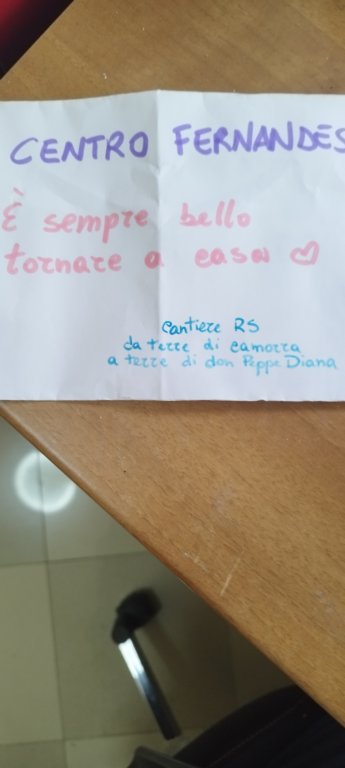 CENTRO FERNANDES
È sempre bello
tornare a casa
Cantiere RS
da terre di camorra
a terre di don Peppe Diana